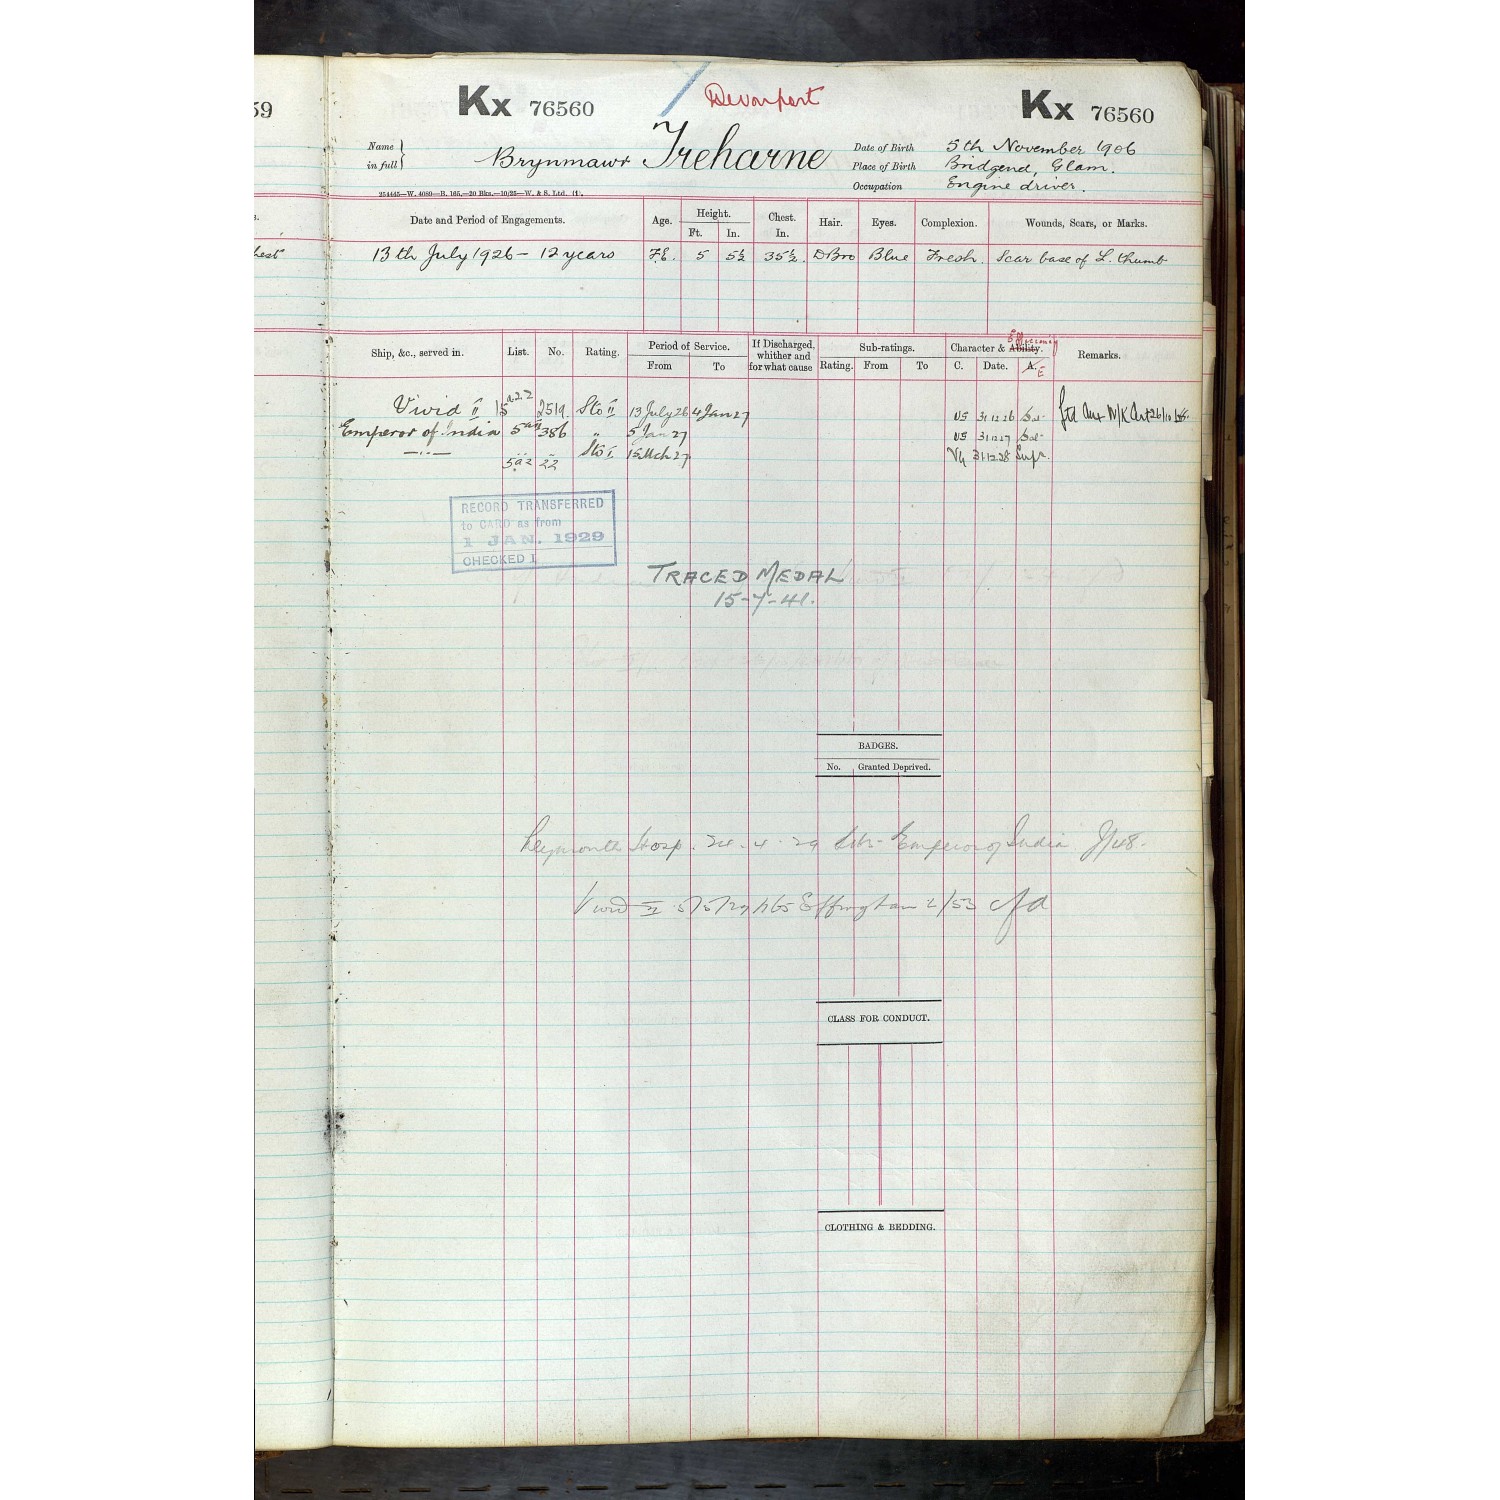 59
Kx 76560
Devonport
Kx 76560
Name in full
Brynmawr Treharne
Date of Birth 5th November 1906
Place of Birth Bridgend, Glam.
Occupation Engine driver.
254445—W. 4080—B. 165.—20 Bks.—10/25—W. & S. Ltd.
Date and Period of Engagements. Age. Height. Ft. In. Chest. In. Hair. Eyes. Complexion. Wounds, Scars, or Marks.
13th July 1926 - 12 years F.E. 5 5½ 35½ DBro Blue Fresh. Scar base of L. thumb
Ship, &c., served in. List. No. Rating. Period of Service. If Discharged, whither and for what cause Sub-ratings. Character & Ability. Remarks.
Efficiency
From To Rating. From To C. Date. A. E
Vivid II 15a22 2519. Sto II 13 July 26 4 Jan 27 VG 31.12.26 Sat
Emperor of India 386 " 5 Jan 27 VG 31.12.27 Sat
—"— 5a2 22 Sto I 15 Mch 27 VG 31.12.28 Supr.
RECORD TRANSFERRED
to CARD as from
1 JAN. 1929
CHECKED
TRACED MEDAL
15-7-41.
BADGES.
No. Granted Deprived.
Plymouth Hosp. 24.4.29 Emperor of India
Vivid II 5/5/29 Effingham 2/53
CLASS FOR CONDUCT.
CLOTHING & BEDDING.